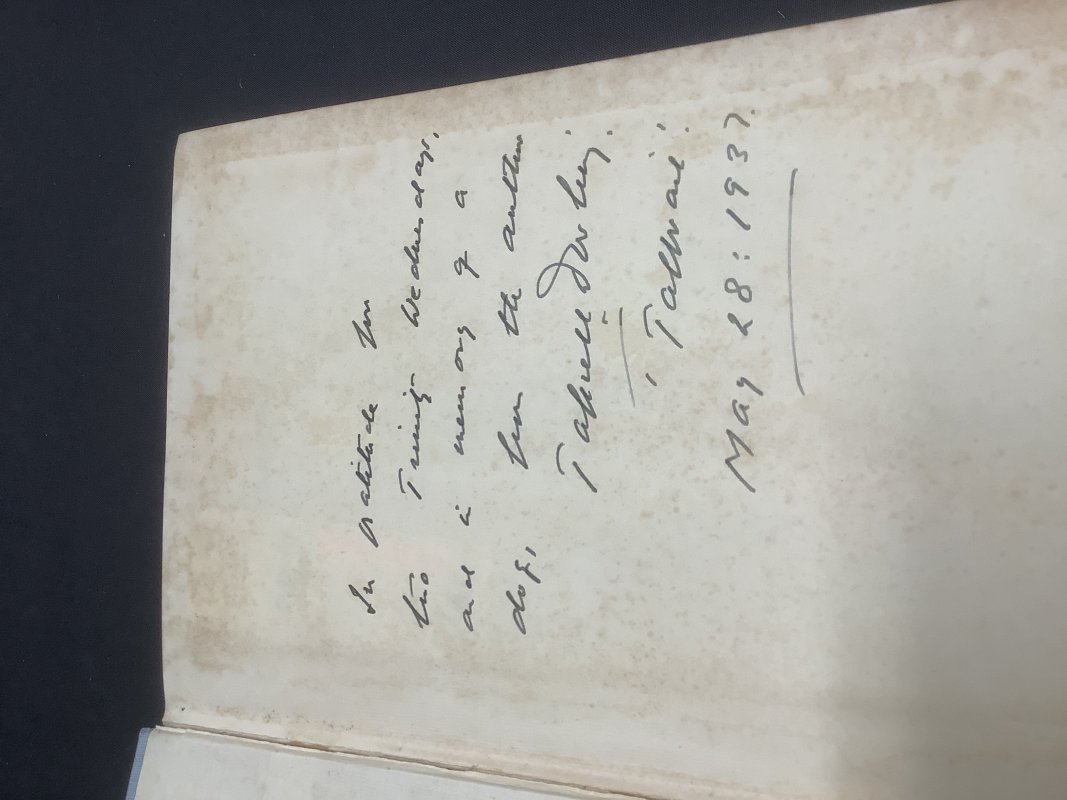 In gratitude for
two Trinity Wednesdays,
and in memory of a
dog, from the author
Taprell Dorling.
'Taffrail'.
May 28: 1937.